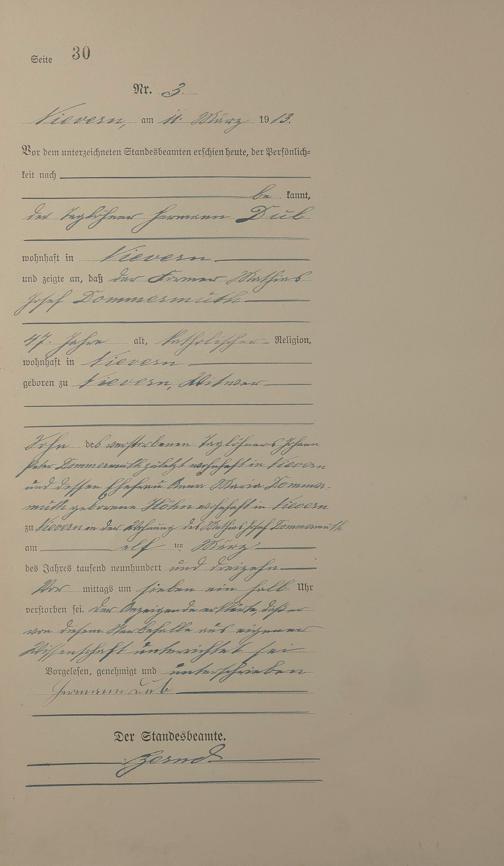 Seite 30
Nr. 3.
Nievern, am 11. März 1913.
Vor dem unterzeichneten Standesbeamten erschien heute, der Persönlich-
keit nach
be kannt,
der Taglöhner Hermann Dub
wohnhaft in Nievern
und zeigte an, daß der Former Mathias
Josef Dommermuth
47 Jahre alt, katholischer Religion,
wohnhaft in Nievern
geboren zu Nievern, Witwer
Sohn des verstorbenen Taglöhners Johann
Peter Dommermuth zuletzt wohnhaft in Nievern
und dessen Ehefrau Anna Maria Dommer-
muth geborene Höhn wohnhaft in Nievern
zu Nievern in der Wohnung des Mathias Josef Dommermuth
am elf ten März
des Jahres tausend neunhundert und dreizehn
Vor mittags um sieben ein halb Uhr
verstorben sei. Der Anzeigende erklärte, daß er
von diesem Sterbefalle aus eigener
Wissenschaft unterrichtet sei
Vorgelesen, genehmigt und unterschrieben
Hermann Dub
Der Standesbeamte.